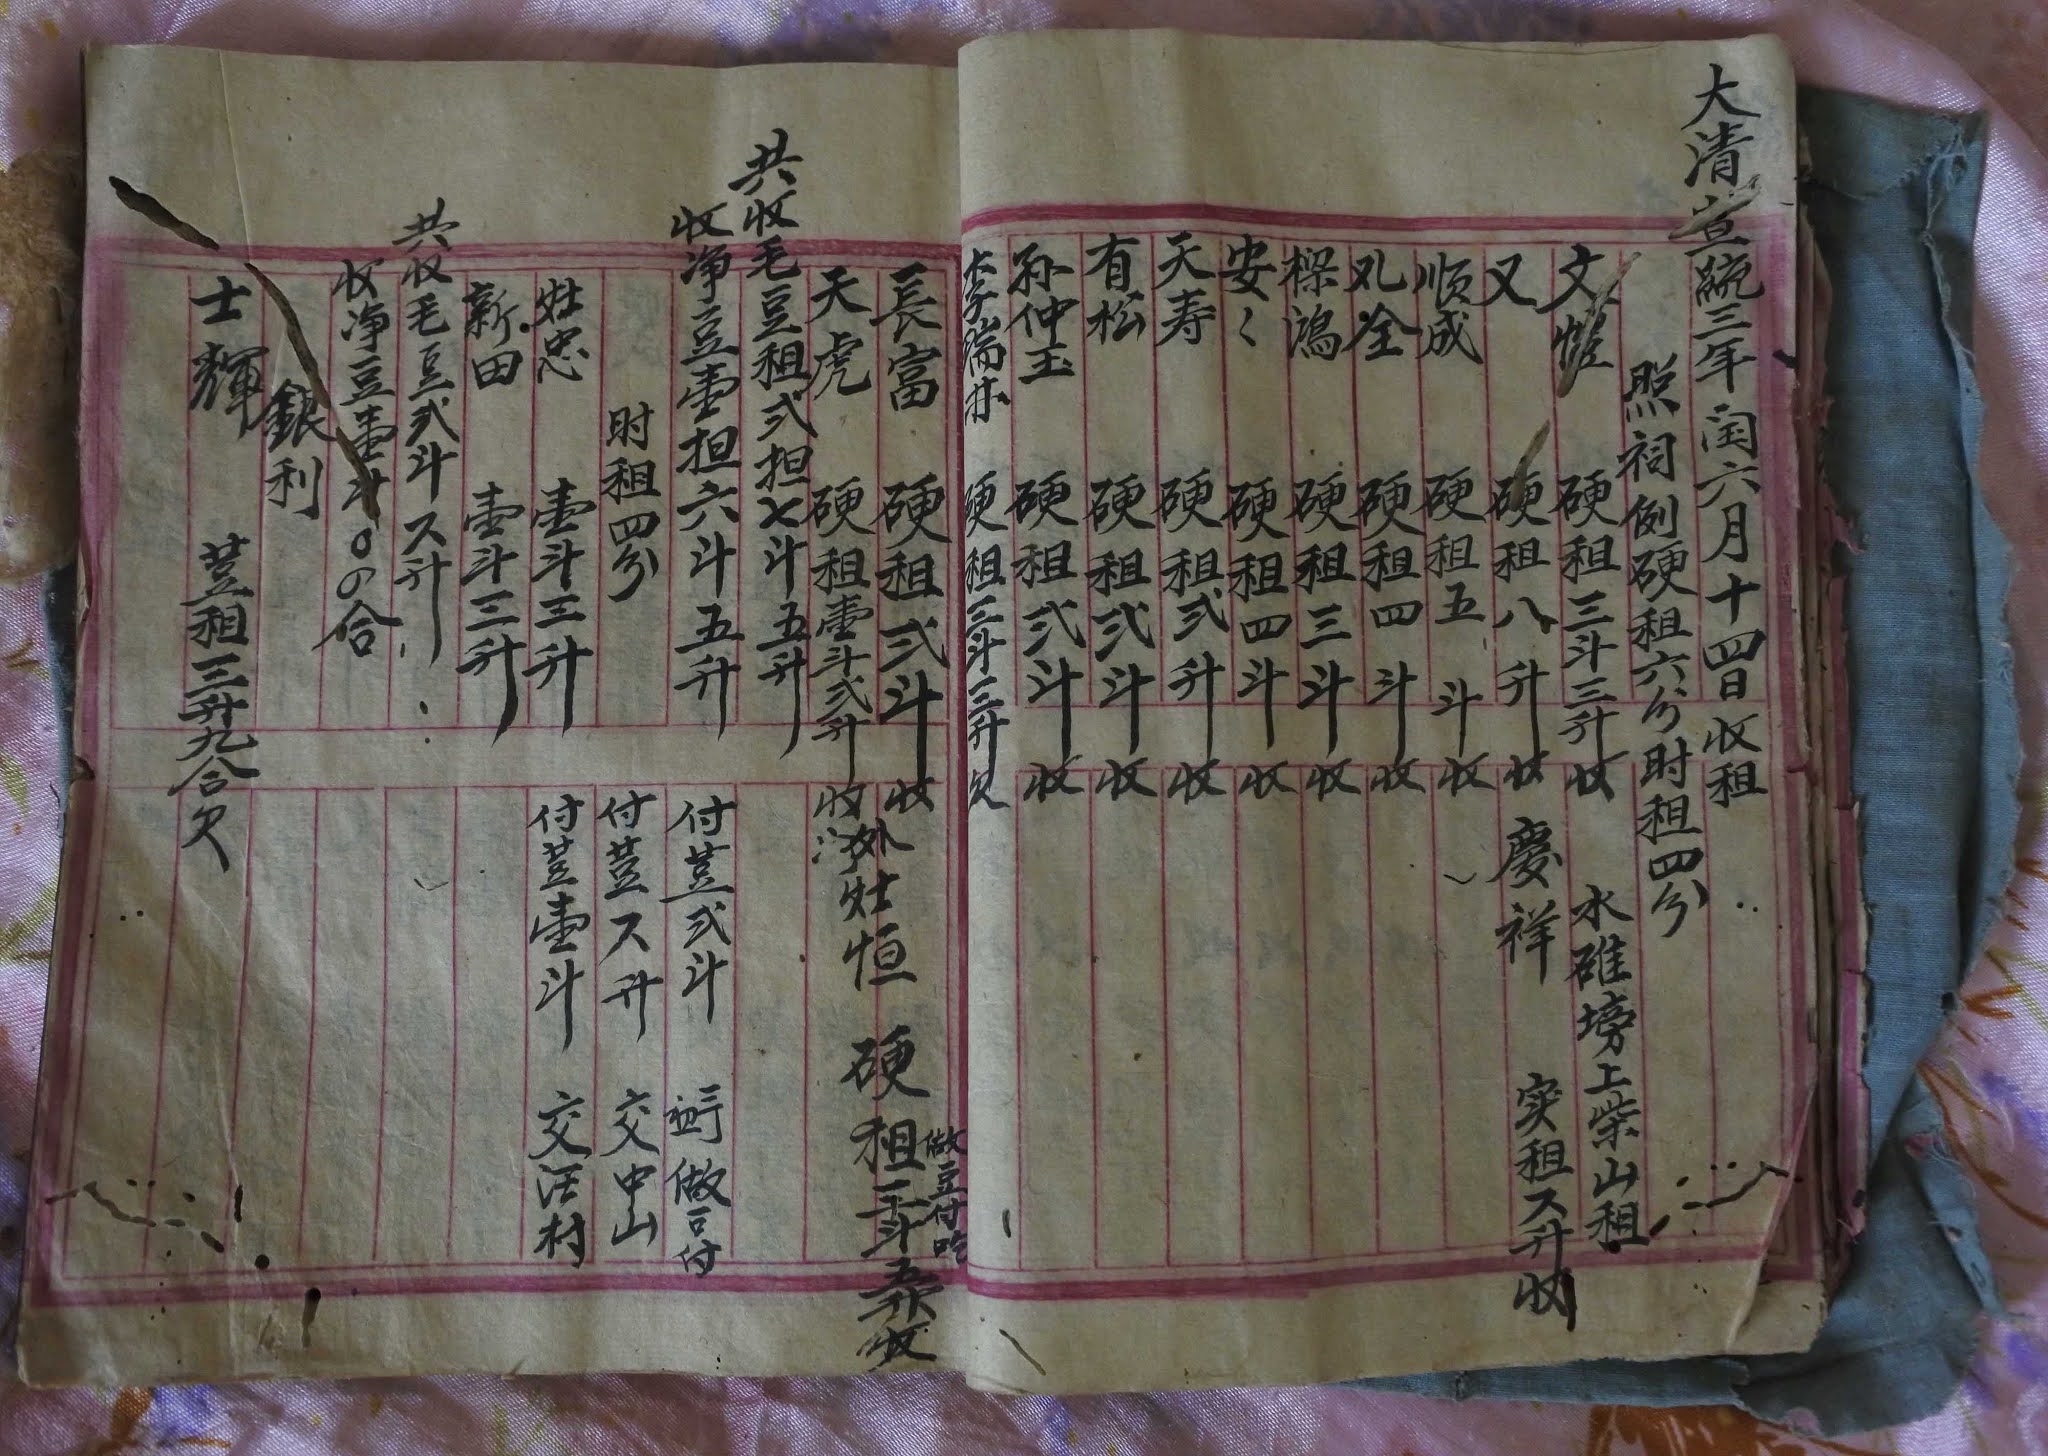 大清宣統三年闰六月十四日收租
照祠例硬租六分时租四分
文 硬租三斗三升收
水碓塝上柴山租
又 硬租八升收
慶祥 实租ス升收
顺成 硬租五斗收
礼全 硬租四斗收
樑鴻 硬租三斗收
安〻 硬租四斗收
天寿 硬租弍升收
有松 硬租弍斗收
孙仲玉 硬租弍斗收
李瑞 硬租三斗三升欠
長富 硬租弍斗收
做豆付吃
天虎 硬租壹斗弍升收
外 灶恒 硬租三斗五升收
共收毛豆租弍担七斗五升
收净豆壹担六斗五升
付荳弍斗 做豆付
时租四分
付荳ス升 交中山
灶忠 壹斗三升
付荳壹斗 交活村
新田 壹斗三升
共收毛豆弍斗ス升
收净豆壹斗〇の合
銀利
士輝 荳租三升九合欠